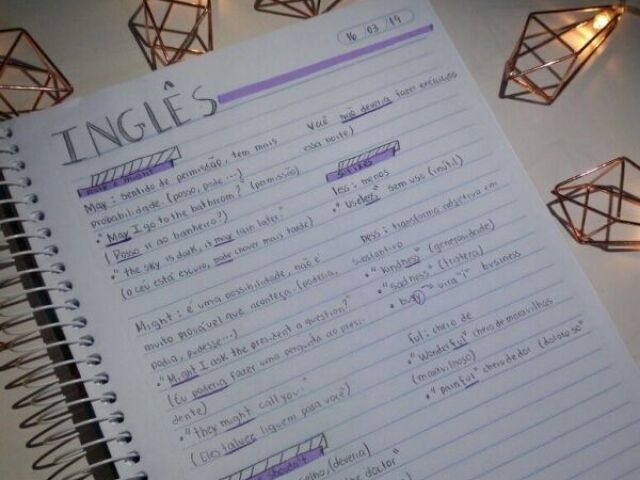 16/03/19
INGLÊS
May e might
May: sentido de permissão, tem mais
probabilidade. (posso, pode...)
• "May I go to the bathroom? (permissão)
(Posso ir ao banheiro?)
• "the sky is dark, it may rain later."
(o céu está escuro, pode chover mais tarde)
Might: é uma possibilidade, não é
muito provável que aconteça. (poderia,
podia, pudesse...)
• "Might I ask the president a question?"
(Eu poderia fazer uma pergunta ao presi-
dente)
• "they might call you."
(Eles talvez liguem para você)
shouldn't
(deveria)
doctor"
Você não deveria fazer exercícios
essa noite)
Sufixes
less: menos
• "Useless" sem uso (inútil)
ness: transforma adjetivo em
substantivo
• "kindness" (generosidade)
• "sadness" (tristeza)
• busy → vira "i" business
ful: cheio de
• "Wonderful" cheio de maravilhas
(maravilhoso)
• "painful" cheio de dor (doloroso)